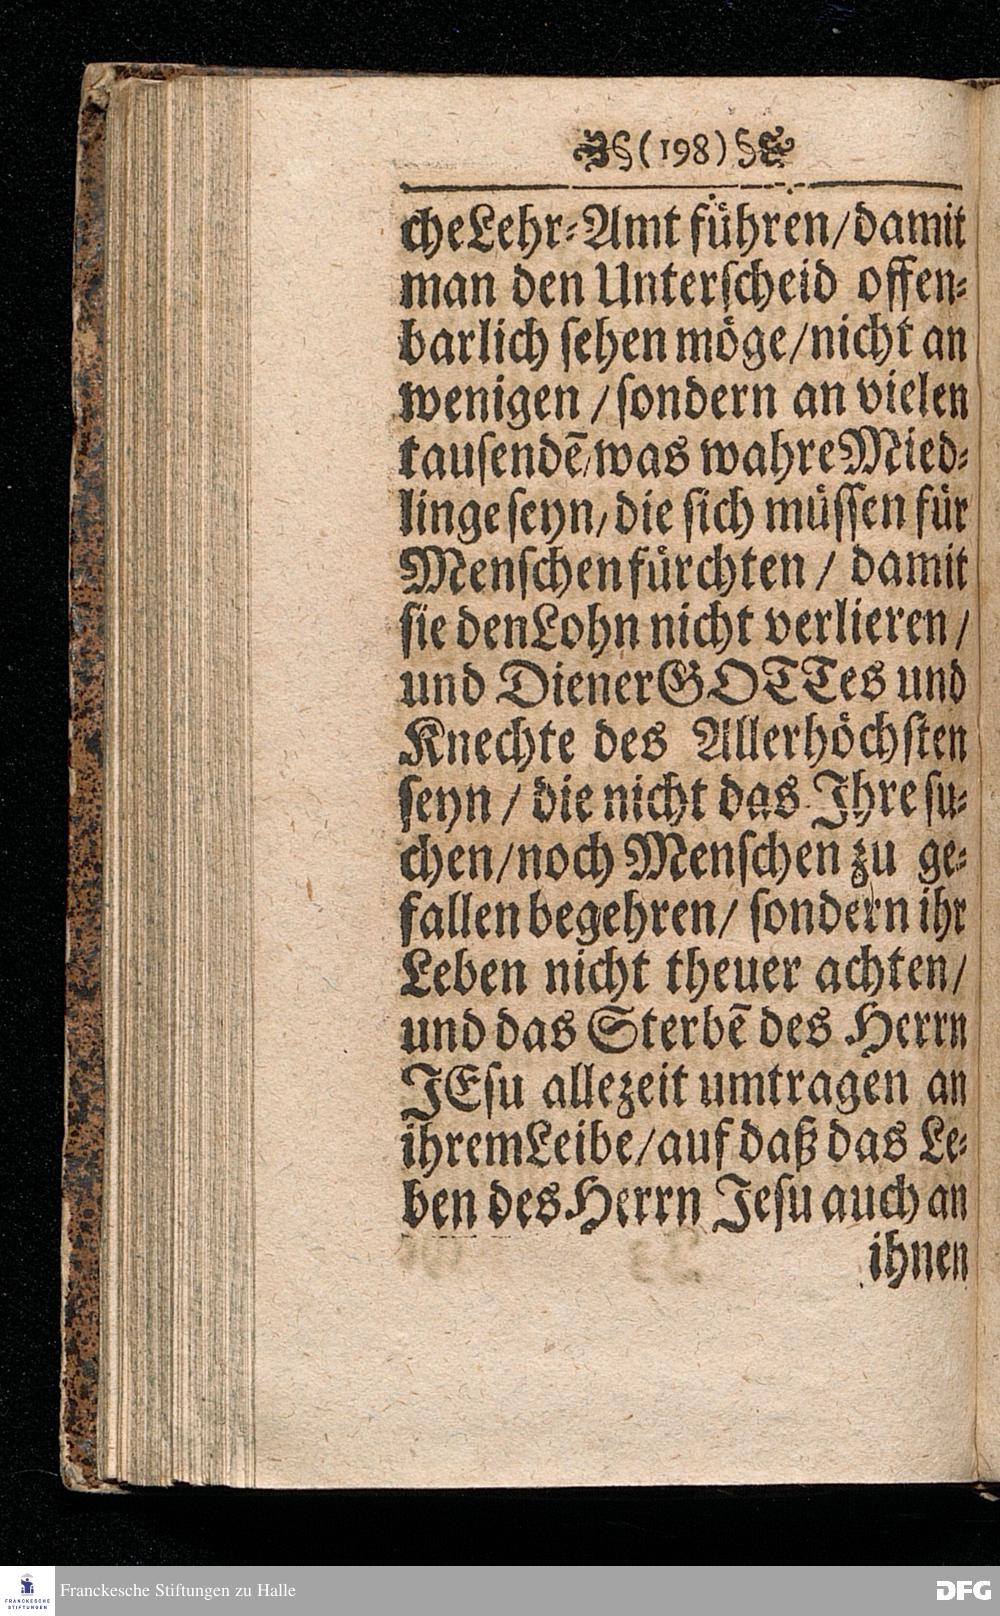 (198)
che Lehr-Amt führen/ damit
man den Unterscheid offen-
barlich sehen möge/ nicht an
wenigen / sondern an vielen
tausendē/ was wahre Mied-
linge seyn/ die sich müssen für
Menschen fürchten / damit
sie den Lohn nicht verlieren /
und Diener GOTTes und
Knechte des Allerhöchsten
seyn / die nicht das Ihre su-
chen/ noch Menschen zu ge-
fallen begehren/ sondern ihr
Leben nicht theuer achten/
und das Sterbē des Herrn
JEsu allezeit umtragen an
ihrem Leibe/ auf daß das Le-
ben des Herrn Jesu auch an
ihnen
FRANCKESCHE
STIFTUNGEN
Franckesche Stiftungen zu Halle
DFG